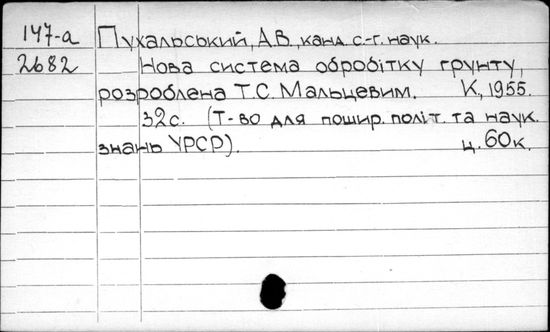 147-а Пухальський, А.В., канд. с.-г. наук.
2682 Нова система обробітку грунту,
розроблена Т.С. Мальцевим. К., 1955.
32с. (Т-во для пошир. політ. та наук.
знань УРСР). ц. 60к.